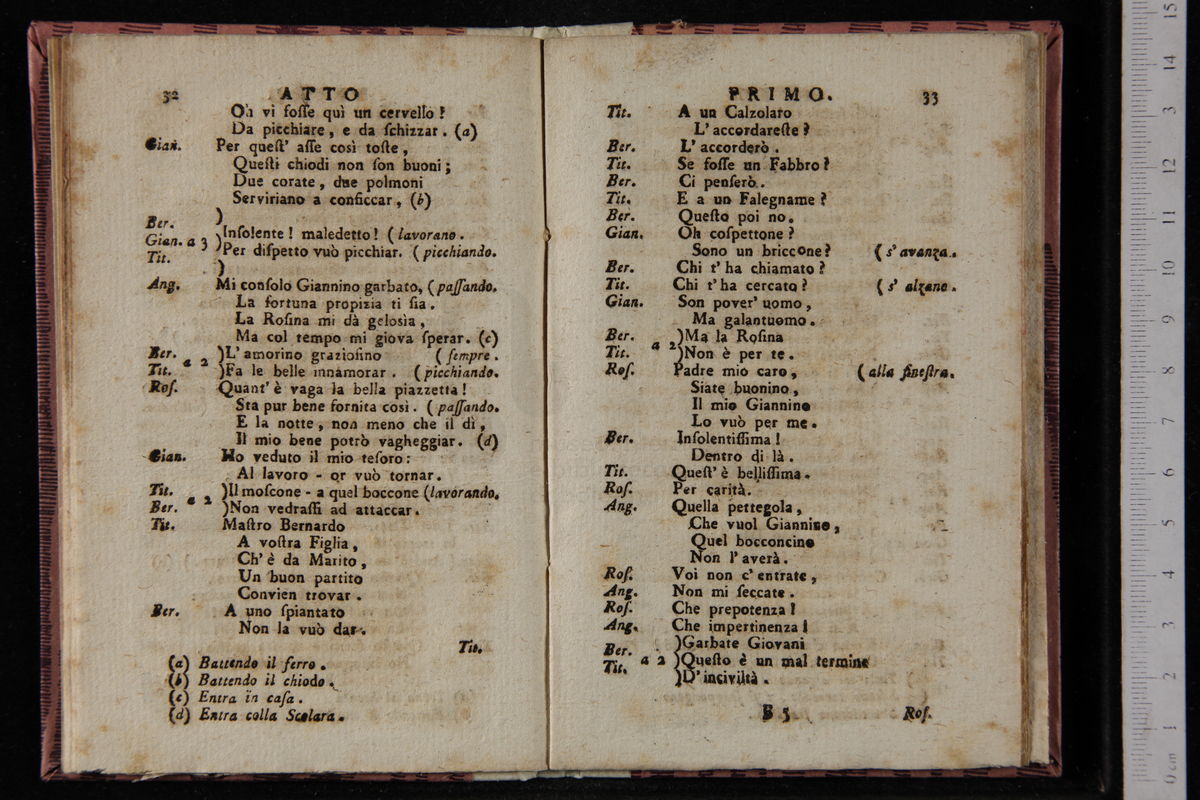 32 ATTO
Oh vi foſſe quì un cervello?
Da picchiare, e da ſchizzar. (a)
Gian. Per queſt' aſſe così toſte,
Queſti chiodi non ſon buoni;
Due corate, due polmoni
Serviriano a conficcar, (b)
)
Ber.
Gian. a 3 )Inſolente! maledetto! ( lavorano.
Tit. )Per diſpetto vuò picchiar. ( picchiando.
)
Ang. Mi conſolo Giannino garbato, ( paſſando.
La fortuna propizia ti ſia.
La Roſina mi dà geloſia,
Ma col tempo mi giova ſperar. (c)
Ber. a 2 )L' amorino grazioſino ( ſempre.
Tit. )Fa le belle innamorar. ( picchiando.
Roſ. Quant' è vaga la bella piazzetta!
Sta pur bene fornita così. ( paſſando.
E la notte, non meno che il dì,
Il mio bene potrò vagheggiar. (d)
Gian. Ho veduto il mio teſoro:
Al lavoro - or vuò tornar.
Tit. a 2 )Il moſcone - a quel boccone (lavorando.
Ber. )Non vedraſſi ad attaccar.
Tit. Maſtro Bernardo
A voſtra Figlia,
Ch' è da Marito,
Un buon partito
Convien trovar.
Ber. A uno ſpiantato
Non la vuò dar.
Tit.
(a) Battendo il ferro.
(b) Battendo il chiodo.
(c) Entra in caſa.
(d) Entra colla Scolara.
PRIMO. 33
Tit. A un Calzolaro
L' accordareſte?
Ber. L' accorderò.
Tit. Se foſſe un Fabbro?
Ber. Ci penſerò.
Tit. E a un Falegname?
Ber. Queſto poi no.
Gian. Oh coſpettone?
Sono un briccone? ( s' avanza.
Ber. Chi t' ha chiamato?
Tit. Chi t' ha cercato? ( s' alzano.
Gian. Son pover' uomo,
Ma galantuomo.
Ber. a 2 )Ma la Roſina
Tit. )Non è per te.
Roſ. Padre mio caro, ( alla fineſtra.
Siate buonino,
Il mio Giannino
Lo vuò per me.
Ber. Inſolentiſſima!
Dentro di là.
Tit. Queſt' è belliſſima.
Roſ. Per carità.
Ang. Quella pettegola,
Che vuol Giannino,
Quel bocconcino
Non l' averà.
Roſ. Voi non c' entrate,
Ang. Non mi ſeccate.
Roſ. Che prepotenza!
Ang. Che impertinenza!
Ber. )Garbate Giovani
Tit. a 2 )Queſto è un mal termine
)D' inciviltà.
B 5 Roſ.
0 cm 1 2 3 4 5 6 7 8 9 10 11 12 13 14 15